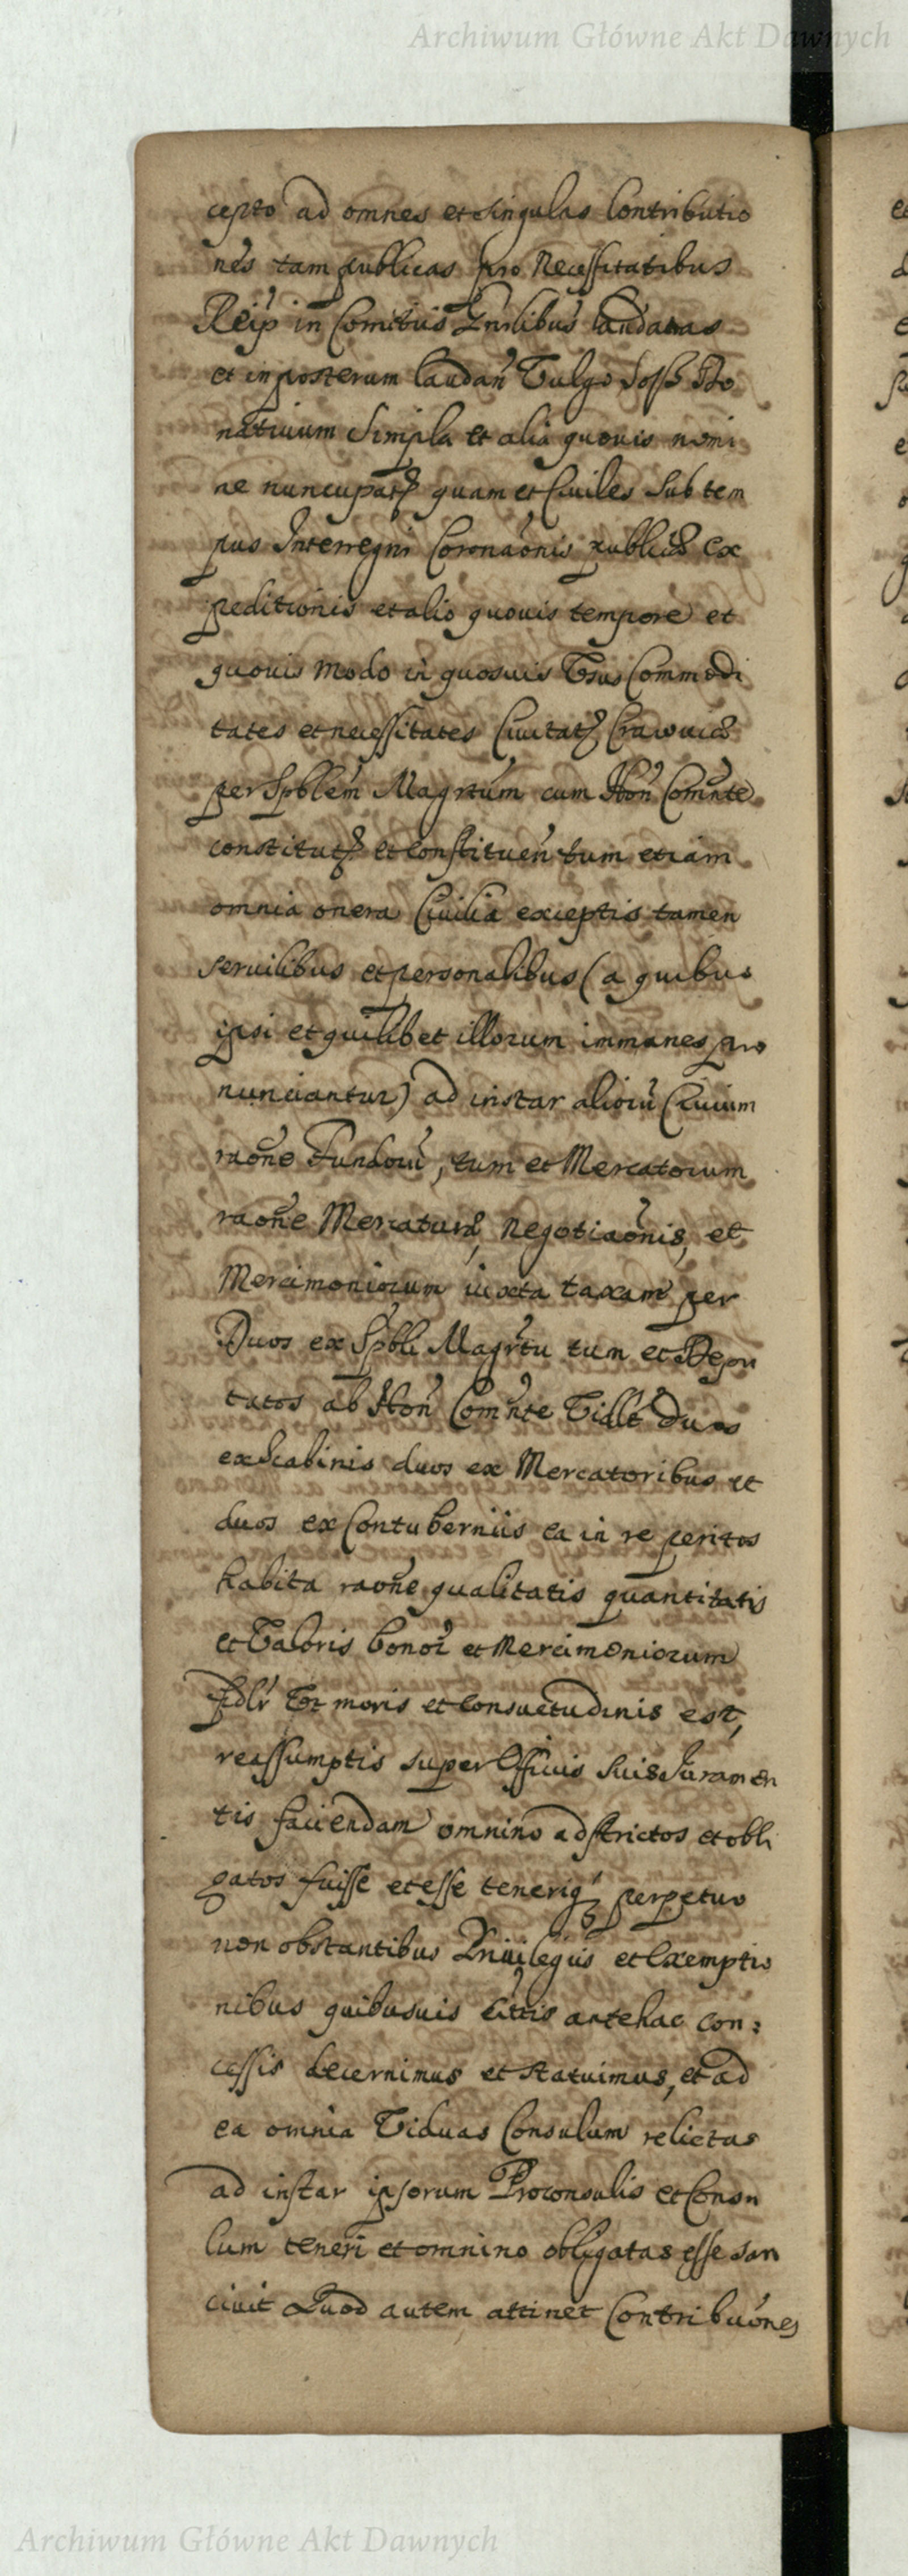 Archiwum Główne Akt Dawnych
cepto ad omnes et singulas Contributio
nes tam publicas pro Necessitatibus
Reip in Comitiis Gnrlibus laudatas
et in posterum laudan Vulgo Sosz Do
nativum Simpla et alia quovis nomi
ne nuncupat quam et Civiles sub tem
pus Interregni Coronaonis publicae Ex
peditionis et alio quovis tempore et
quovis modo in quosvis Usus Commodi
tates et necessitates Civitat Cracovien
per Spblem Magrtum cum Hon Comnte
constitut et constituen tum etiam
omnia onera Civilia exceptis tamen
servilibus et personalibus (a quibus
ipsi et quilibet illorum immanes pro
nunciantur) ad instar alioru Civium
raone Fundoru, tum et Mercatorum
raone Mercaturae, Negotiaonis, et
Mercimoniorum iuxta taxam per
Duos ex Spbli Magrtu tum et Depu
tatos ab Hon Comnte Vidlt duos
ex Scabinis duos ex Mercatoribus et
duos ex Contuberniis ea in re peritos
habita raone qualitatis quantitatis
et Valoris bonor et Mercimoniorum
moris et consuetudinis est,
reassumptis super Officiis suis Juramen
tis faciendam omnino adstrictos et obli
gatos fuisse et esse teneriq perpetuo
non obstantibus Privilegiis et Exemptio
nibus quibusvis antehac con:
cessis decernimus et statuimus, et ad
ea omnia Viduas Consulum relictas
ad instar ipsorum Proconsulis et Consu
lum teneri et omnino obligatas esse san
civit Quod autem attinet Contribuones
Archiwum Główne Akt Dawnych